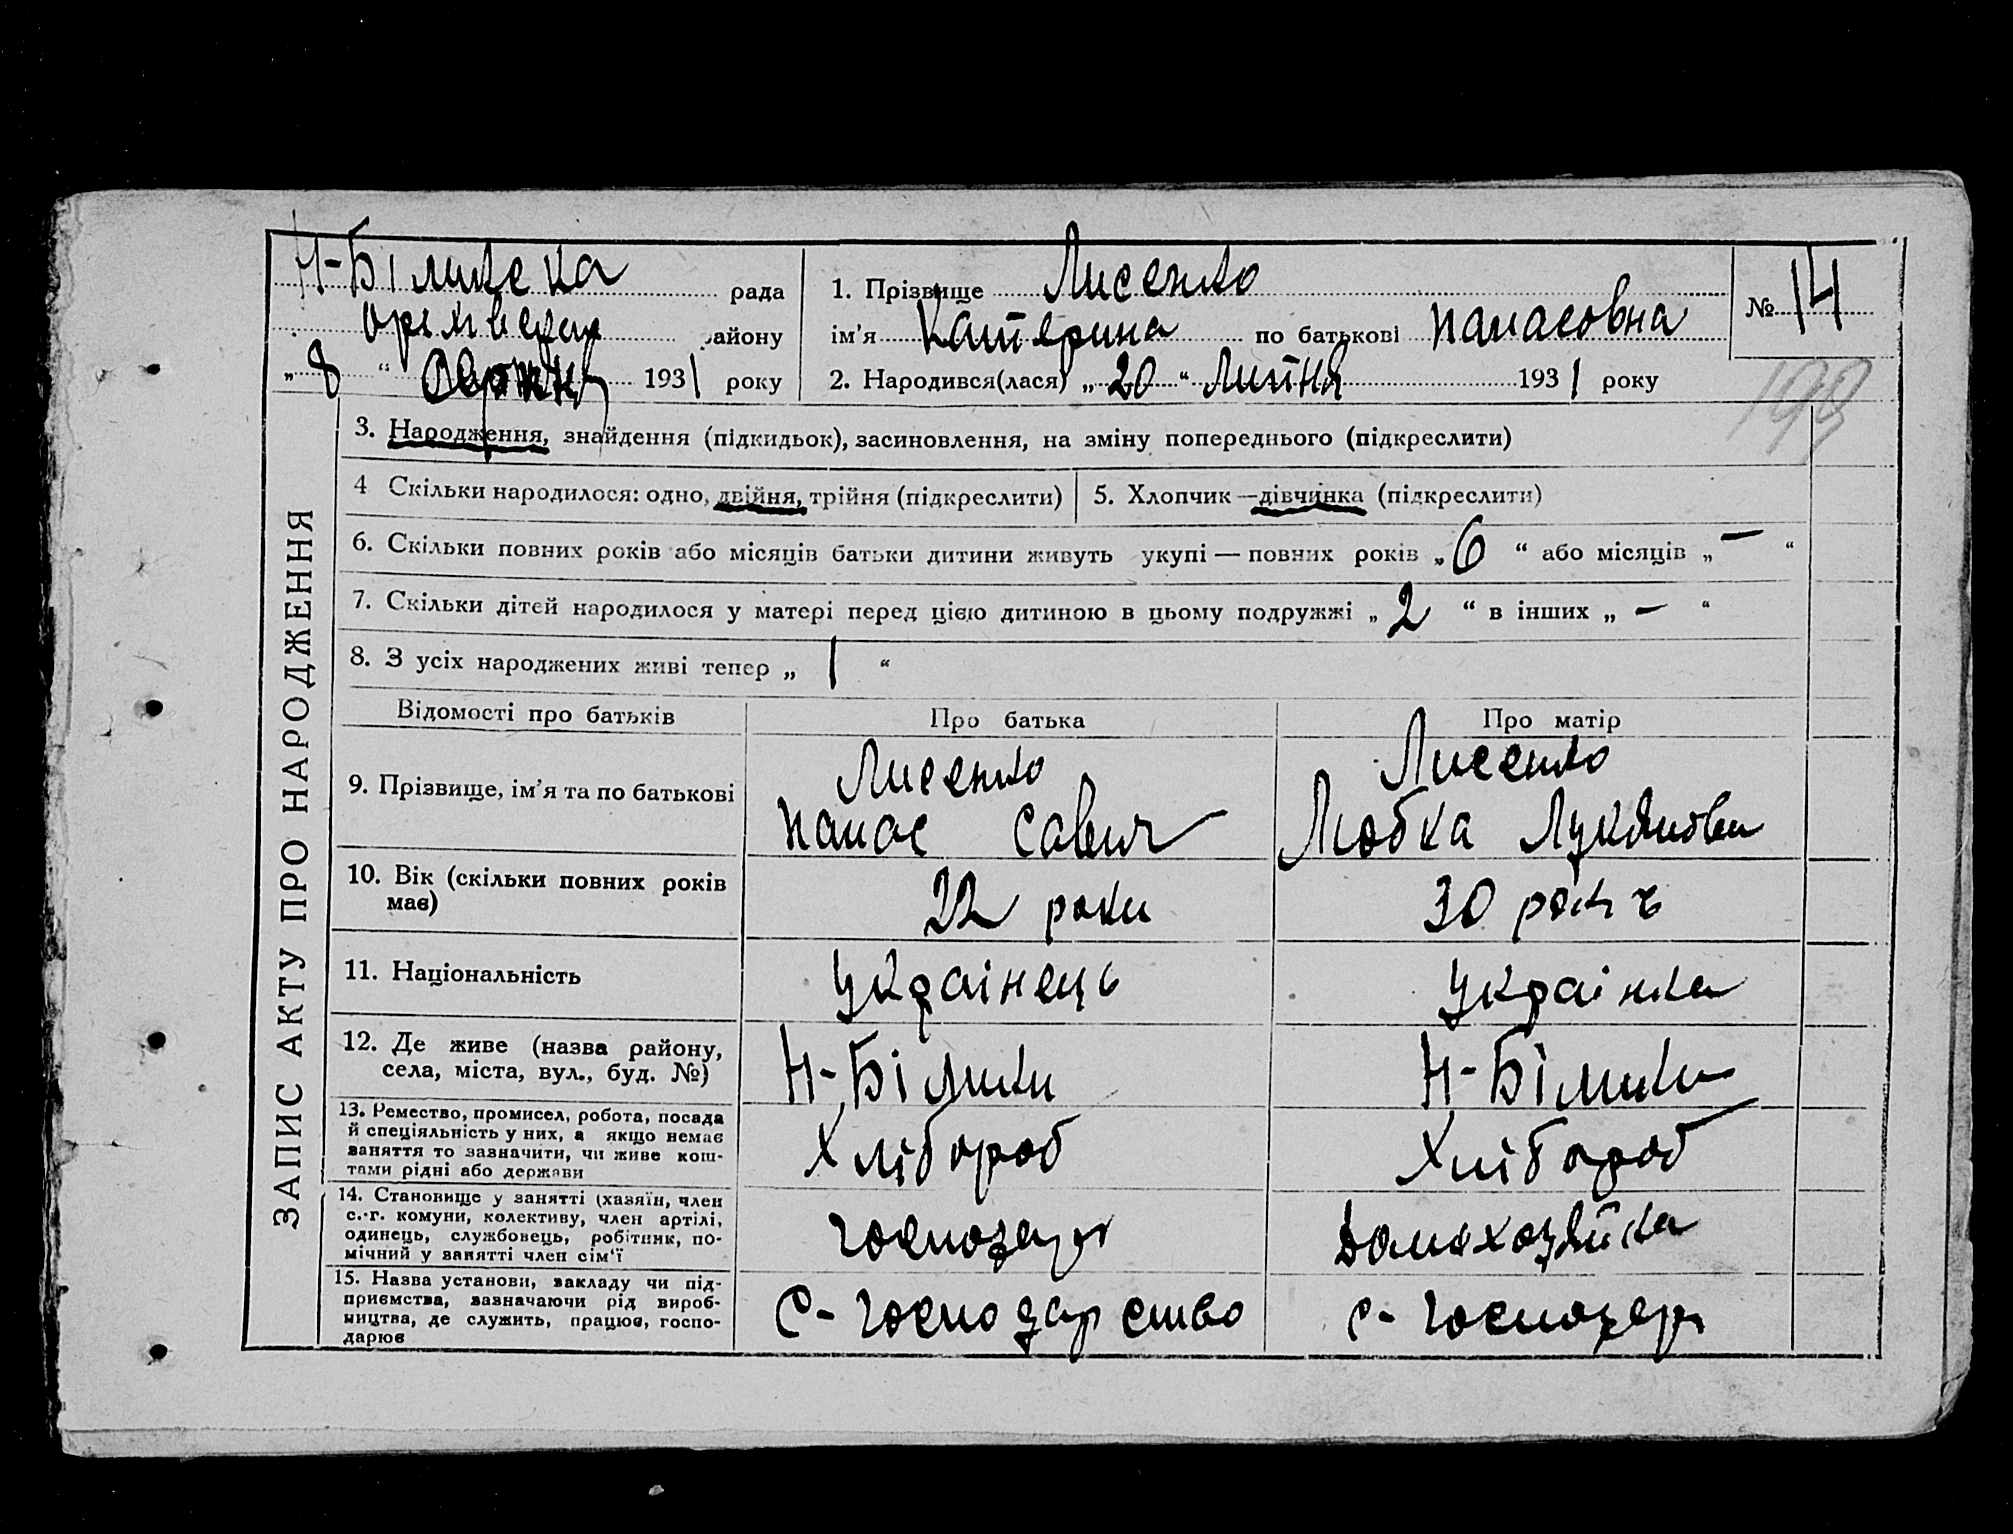 Н-Білицька рада
району
„ 8 “ Серпня 1931 року
1. Прізвище Лисенко
ім’я Катерина по батькові Панасовна
2. Народився(лася) „ 20 “ Липня 1931 року
№ 14
199
ЗАПИС АКТУ ПРО НАРОДЖЕННЯ
3. Народження, знайдення (підкидьок), засиновлення, на зміну попереднього (підкреслити)
4 Скільки народилося: одно, двійня, трійня (підкреслити)
5. Хлопчик—дівчинка (підкреслити)
6. Скільки повних років або місяців батьки дитини живуть укупі — повних років „ 6 “ або місяців „ — “
7. Скільки дітей народилося у матері перед цією дитиною в цьому подружжі „ 2 “ в інших „ — “
8. З усіх народжених живі тепер „ 1 “
Відомості про батьків Про батька Про матір
9. Прізвище, ім’я та по батькові
Лисенко
Панас Савич
Лисенко
Любка Лукяновна
10. Вік (скільки повних років
має)
22 роки
30 років
11. Національність
Українець
Українка
12. Де живе (назва району,
села, міста, вул., буд. №)
Н-Білики
Н-Білики
13. Ремество, промисел, робота, посада
й спеціяльність у них, а якщо немає
заняття то зазначити, чи живе кош-
тами рідні або держави
Хлібороб
Хлібороб
14. Становище у занятті (хазяїн, член
с.-г. комуни, колективу, член артілі,
одинець, службовець, робітник, по-
мічний у занятті член сім’ї
господар
Домохозяйка
15. Назва установи, закладу чи під-
приємства, зазначаючи рід вироб-
ництва, де служить, працює, госпо-
дарює
С-господарство
с-господар